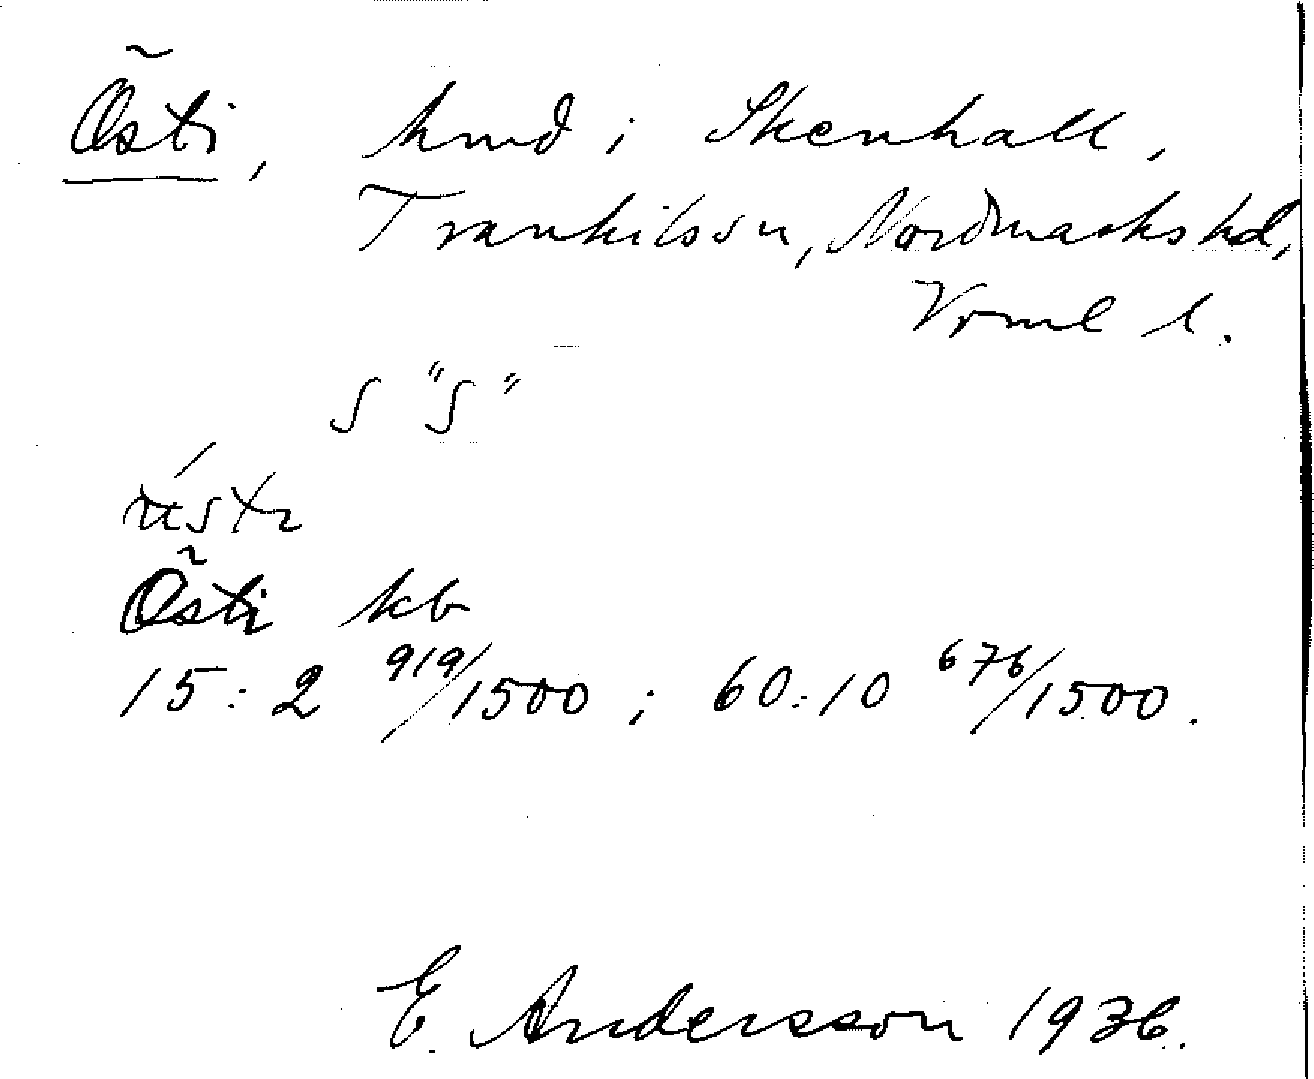 Östi, hmd i Skenhall,
Trankilssn, Nordmarks hd,
Vrml l.
S "S"
Östi kb
15:2 919/1500 ; 60:10 676/1500.
E. Andersson 1936.